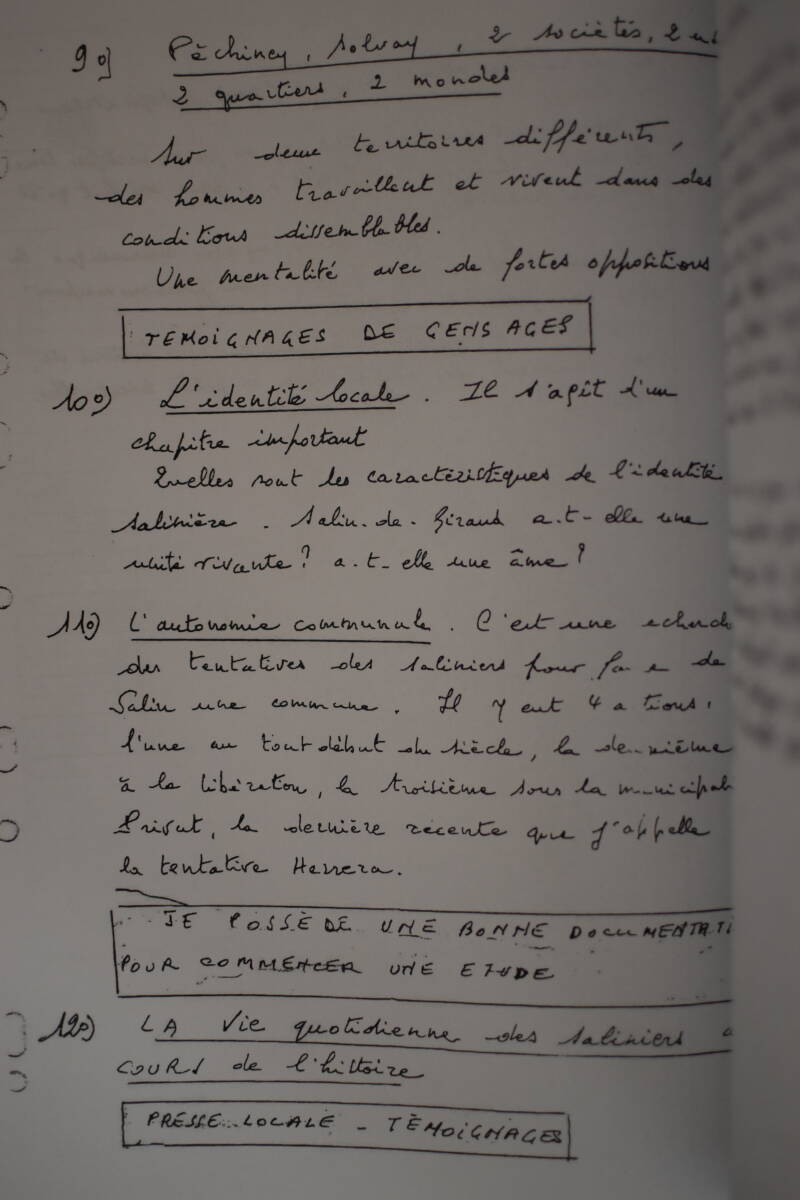 9°) Pèchiney, Solvay, 2 sociètés, 2
2 quartiers, 2 mondes
Sur deux territoires différents,
des hommes travaillent et vivent dans des
conditions dissemblables.
Une mentalité avec de fortes oppositions
TEMOIGNAGES DE GENS AGES
10°) L'identité locale. Il s'agît d'un
chapitre important
Quelles sont les caractéristiques de l'identité
salinière. Salin-de-Giraud a-t-elle une
unité vivante? a-t-elle une âme?
11°) L'autonomie communale. C'est une
des tentatives des saliniers pour de
Salin une commune. Il y eut 4
l'une au tout début du siècle, la
à la libération, la troisième sous la
Privat, la dernière récente que j'appelle
la tentative Herrera.
JE POSSÈDE UNE BONNE
POUR COMMENCER UNE ETUDE
12°) LA Vie quotidienne des saliniers
COURS de l'histoire
PRESSE LOCALE - TÈMOIGNAGES